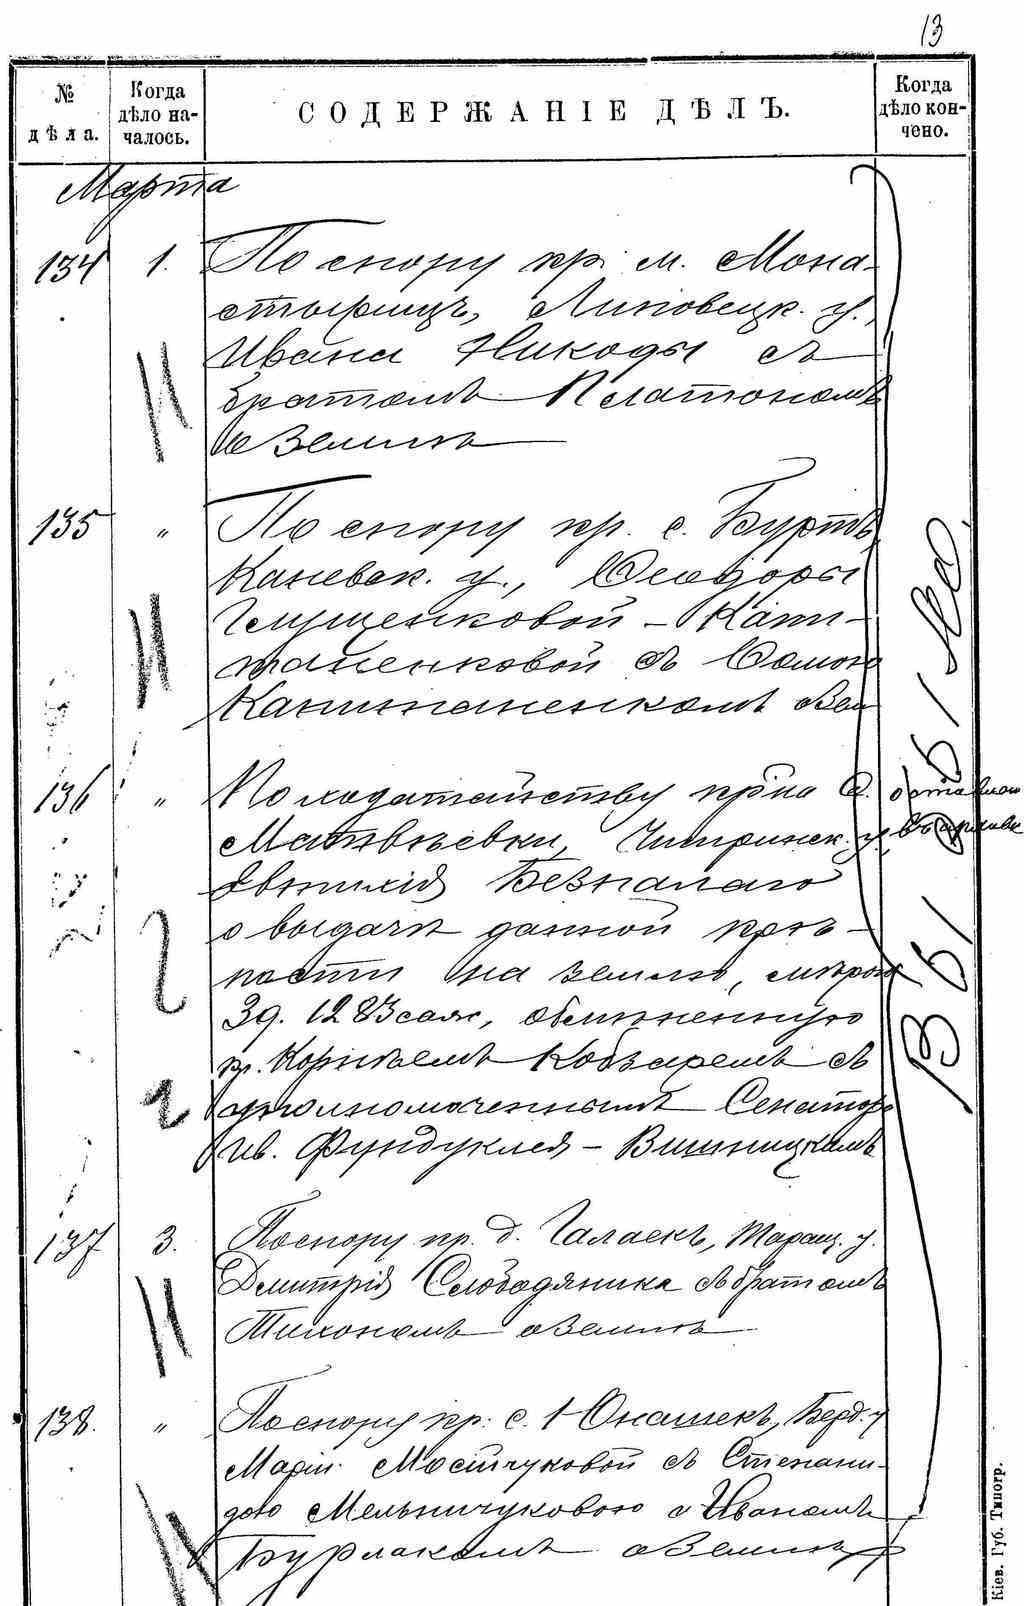 13
№ дѣла.
Когда дѣло на-чалось.
СОДЕРЖАНІЕ ДѢЛЪ.
Когда дѣло кон-чено.
Марта
134 1. По спору кр. м. Мона-
стырищъ, Липовецк. у.,
Ивана Никоды съ
братомъ Платономъ
о землѣ
135 „ По спору кр. с. Буртъ,
Каневск. у., Ѳеодоры
Глущенковой - Капи-
таненковой съ Ѳомою
Капитаненкомъ о зем
136 „ По ходатайству кр-на с.
Матвѣевки, Чигринск. у.
Евтихія Безпалаго
о выдачѣ данной крѣ-
пости на землю, мѣрою
3д. 1283 саж,
кр. Корнѣемъ Кобзаремъ съ
уполномоченнымъ Сенатора
Ив. Фундуклея - Вишницкимъ
137 3. По спору кр. д. Галаекъ, Таращ. у.
Дмитрія Слободяника съ братомъ
Тихономъ о землѣ
138. „ По спору кр. с. Юнашекъ, Берд. у
Маріи Мостчуковой съ Степани-
дою Мельничуковою и Иваномъ
Бурлакомъ о землѣ
Кіев. Губ. Типогр.